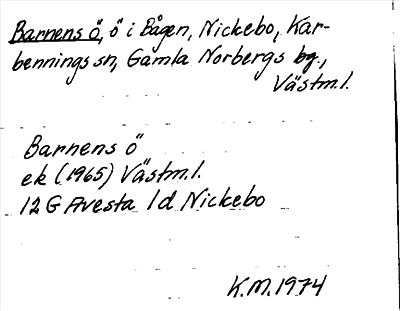 Barnens ö, ö i Bågen, Nickebo, Kar-
bennings sn, Gamla Norbergs bg.,
Västm.l.
Barnens ö
ek (1965) Västm.l.
12 G Avesta 1d Nickebo
K.M. 1974